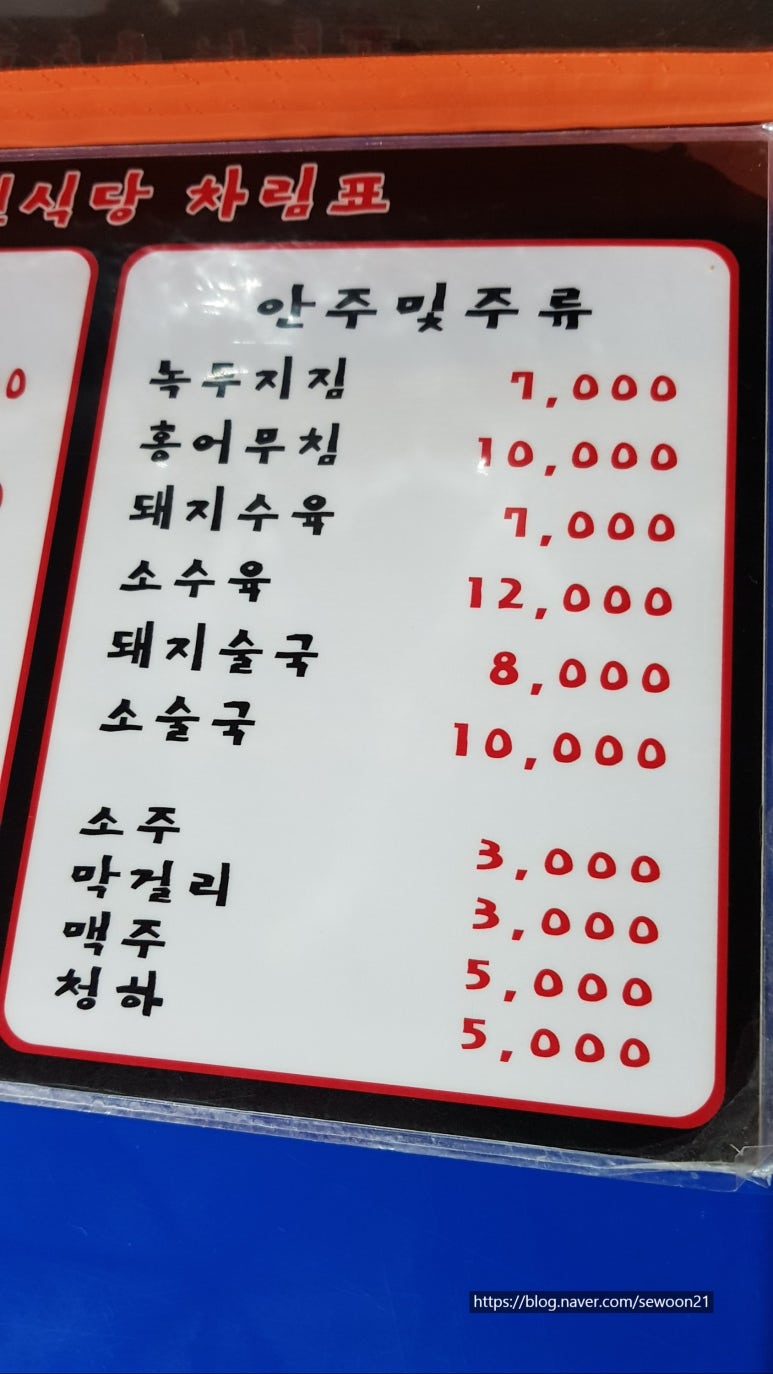 식당 차림표
안주및주류
녹두지짐 7,000
홍어무침 10,000
돼지수육 7,000
소수육 12,000
돼지술국 8,000
소술국 10,000
소주 3,000
막걸리 3,000
맥주 5,000
청하 5,000
https://blog.naver.com/sewoon21